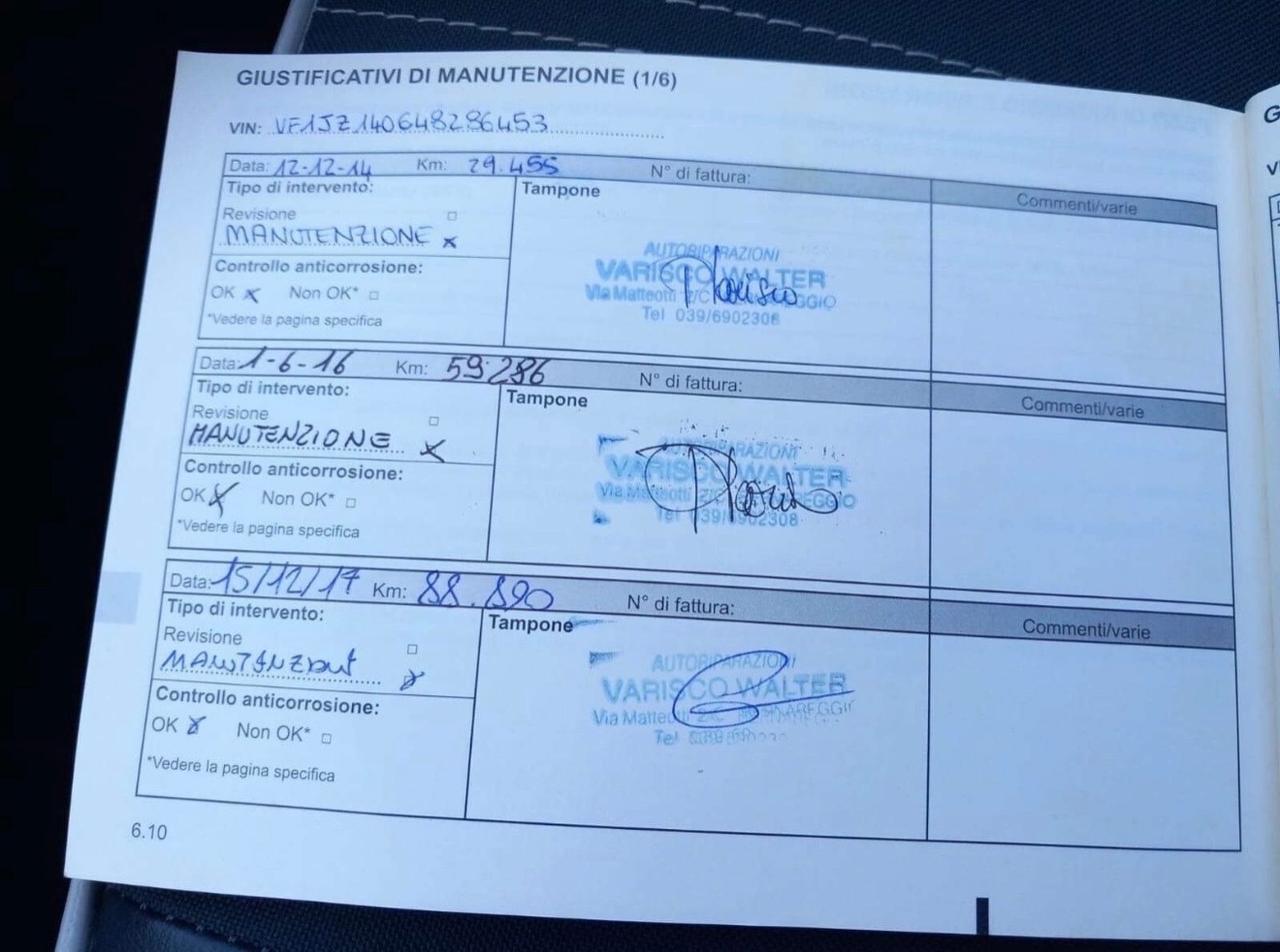 GIUSTIFICATIVI DI MANUTENZIONE (1/6)
VIN: VF1JZ140648286453
Data: 12-12-14 Km: 29.455 N° di fattura:
Tipo di intervento: Tampone Commenti/varie
Revisione
MANUTENZIONE x
Controllo anticorrosione:
OK x Non OK*
*Vedere la pagina specifica
AUTORIPARAZIONI
VARISCO WALTER
Via Matteotti 2/C
Tel 039/6902308
Varisco
Data: 1-6-16 Km: 59.286 N° di fattura:
Tipo di intervento: Tampone Commenti/varie
Revisione
MANUTENZIONE x
Controllo anticorrosione:
OK x Non OK*
*Vedere la pagina specifica
AUTORIPARAZIONI
VARISCO WALTER
Via Matteotti 2/C
Tel 039/6902308
Data: 15/12/17 Km: 88.890 N° di fattura:
Tipo di intervento: Tampone Commenti/varie
Revisione
MANUTENZIONE x
Controllo anticorrosione:
OK x Non OK*
*Vedere la pagina specifica
AUTORIPARAZIONI
VARISCO WALTER
Via Matteotti 2/C
Tel
6.10